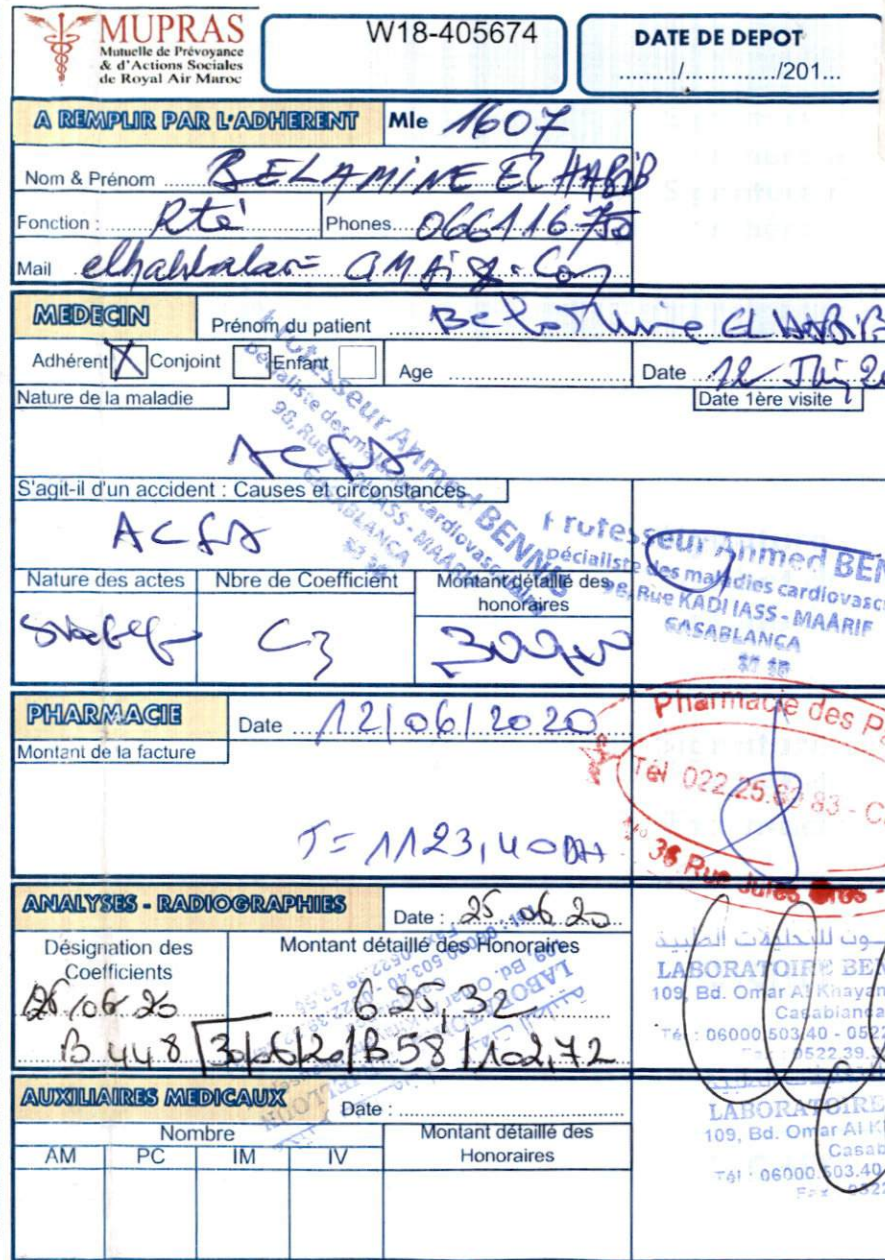 MUPRAS
Mutuelle de Prévoyance
& d'Actions Sociales
de Royal Air Maroc
W18-405674
DATE DE DEPOT
........./............../201...
A REMPLIR PAR L'ADHERENT Mle 1607
Nom & Prénom BELAMINE EL HABIB
Fonction : Rté Phones
Mail
MEDECIN Prénom du patient EL HABIB
Adhérent X Conjoint Enfant Age Date 12
Nature de la maladie Date 1ère visite
ACFA
S'agit-il d'un accident : Causes et circonstances
ACFA
Professeur Ahmed BENNIS
pécialiste des maladies cardiovasculaires
98, Rue KADI IASS - MAARIF
CASABLANCA
Professeur Ahmed BEN
pécialiste des maladies cardiovasc
98, Rue KADI IASS - MAARIF
CASABLANCA
Nature des actes Nbre de Coefficient Montant détaillé des honoraires
C3
PHARMACIE Date 12/06/2020
Montant de la facture
T= 1123,40 DH
Pharmacie des P
Tél 022.25.82.83 - C
36 Rue Jules Gros -
ANALYSES - RADIOGRAPHIES Date : 25.06.20
Désignation des Coefficients Montant détaillé des Honoraires
25/06/20 625,32
B 448 30/06/20/B 58 /102,72
للتحليلات الطبية
LABORATOIRE BEN
109, Bd. Omar Al Khayam
Casablanca
Tél : 06000 503 40 - 0522
Fax : 0522 39
LABORATOIRE
109, Bd. Omar Al K
Casab
Tél : 06000.503.40
Fax : 0522
AUXILIAIRES MEDICAUX Date :
Nombre Montant détaillé des Honoraires
AM PC IM IV